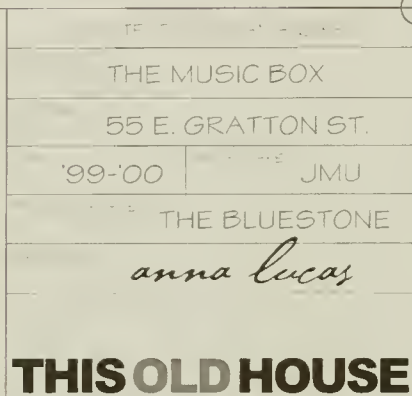 THE MUSIC BOX
55 E. GRATTON ST.
'99-'00 JMU
THE BLUESTONE
anna lucas
THIS OLD HOUSE